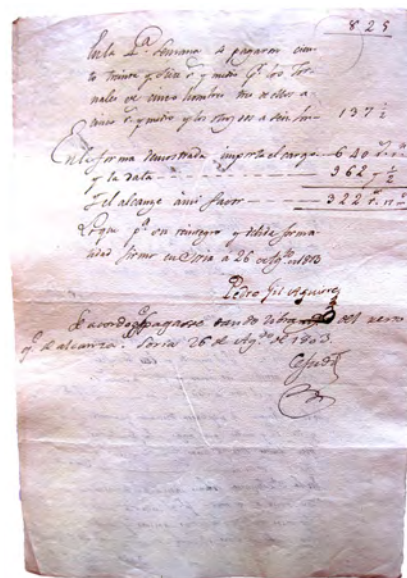 825
En la 2ª semana se pagaron cien-
to treinta y siete rs. y medio pr. los Jor-
nales de cinco hombres tres de ellos a
cinco rs. y medio y los otros dos a seis 137 ½
En la forma demostrada importa el cargo 640 rs.
y la data 962 y ½
Y el alcanze à mi favor 322 rs. 17 ms
Lo que pa. su reintegro y devida forma-
lidad firmo en Soria a 26 de Agto. de 1803
Pedro Gil Aguirre
Se acordó pagarse dando del resto
qe. alcanza. Soria 26 de Agto de 1803.